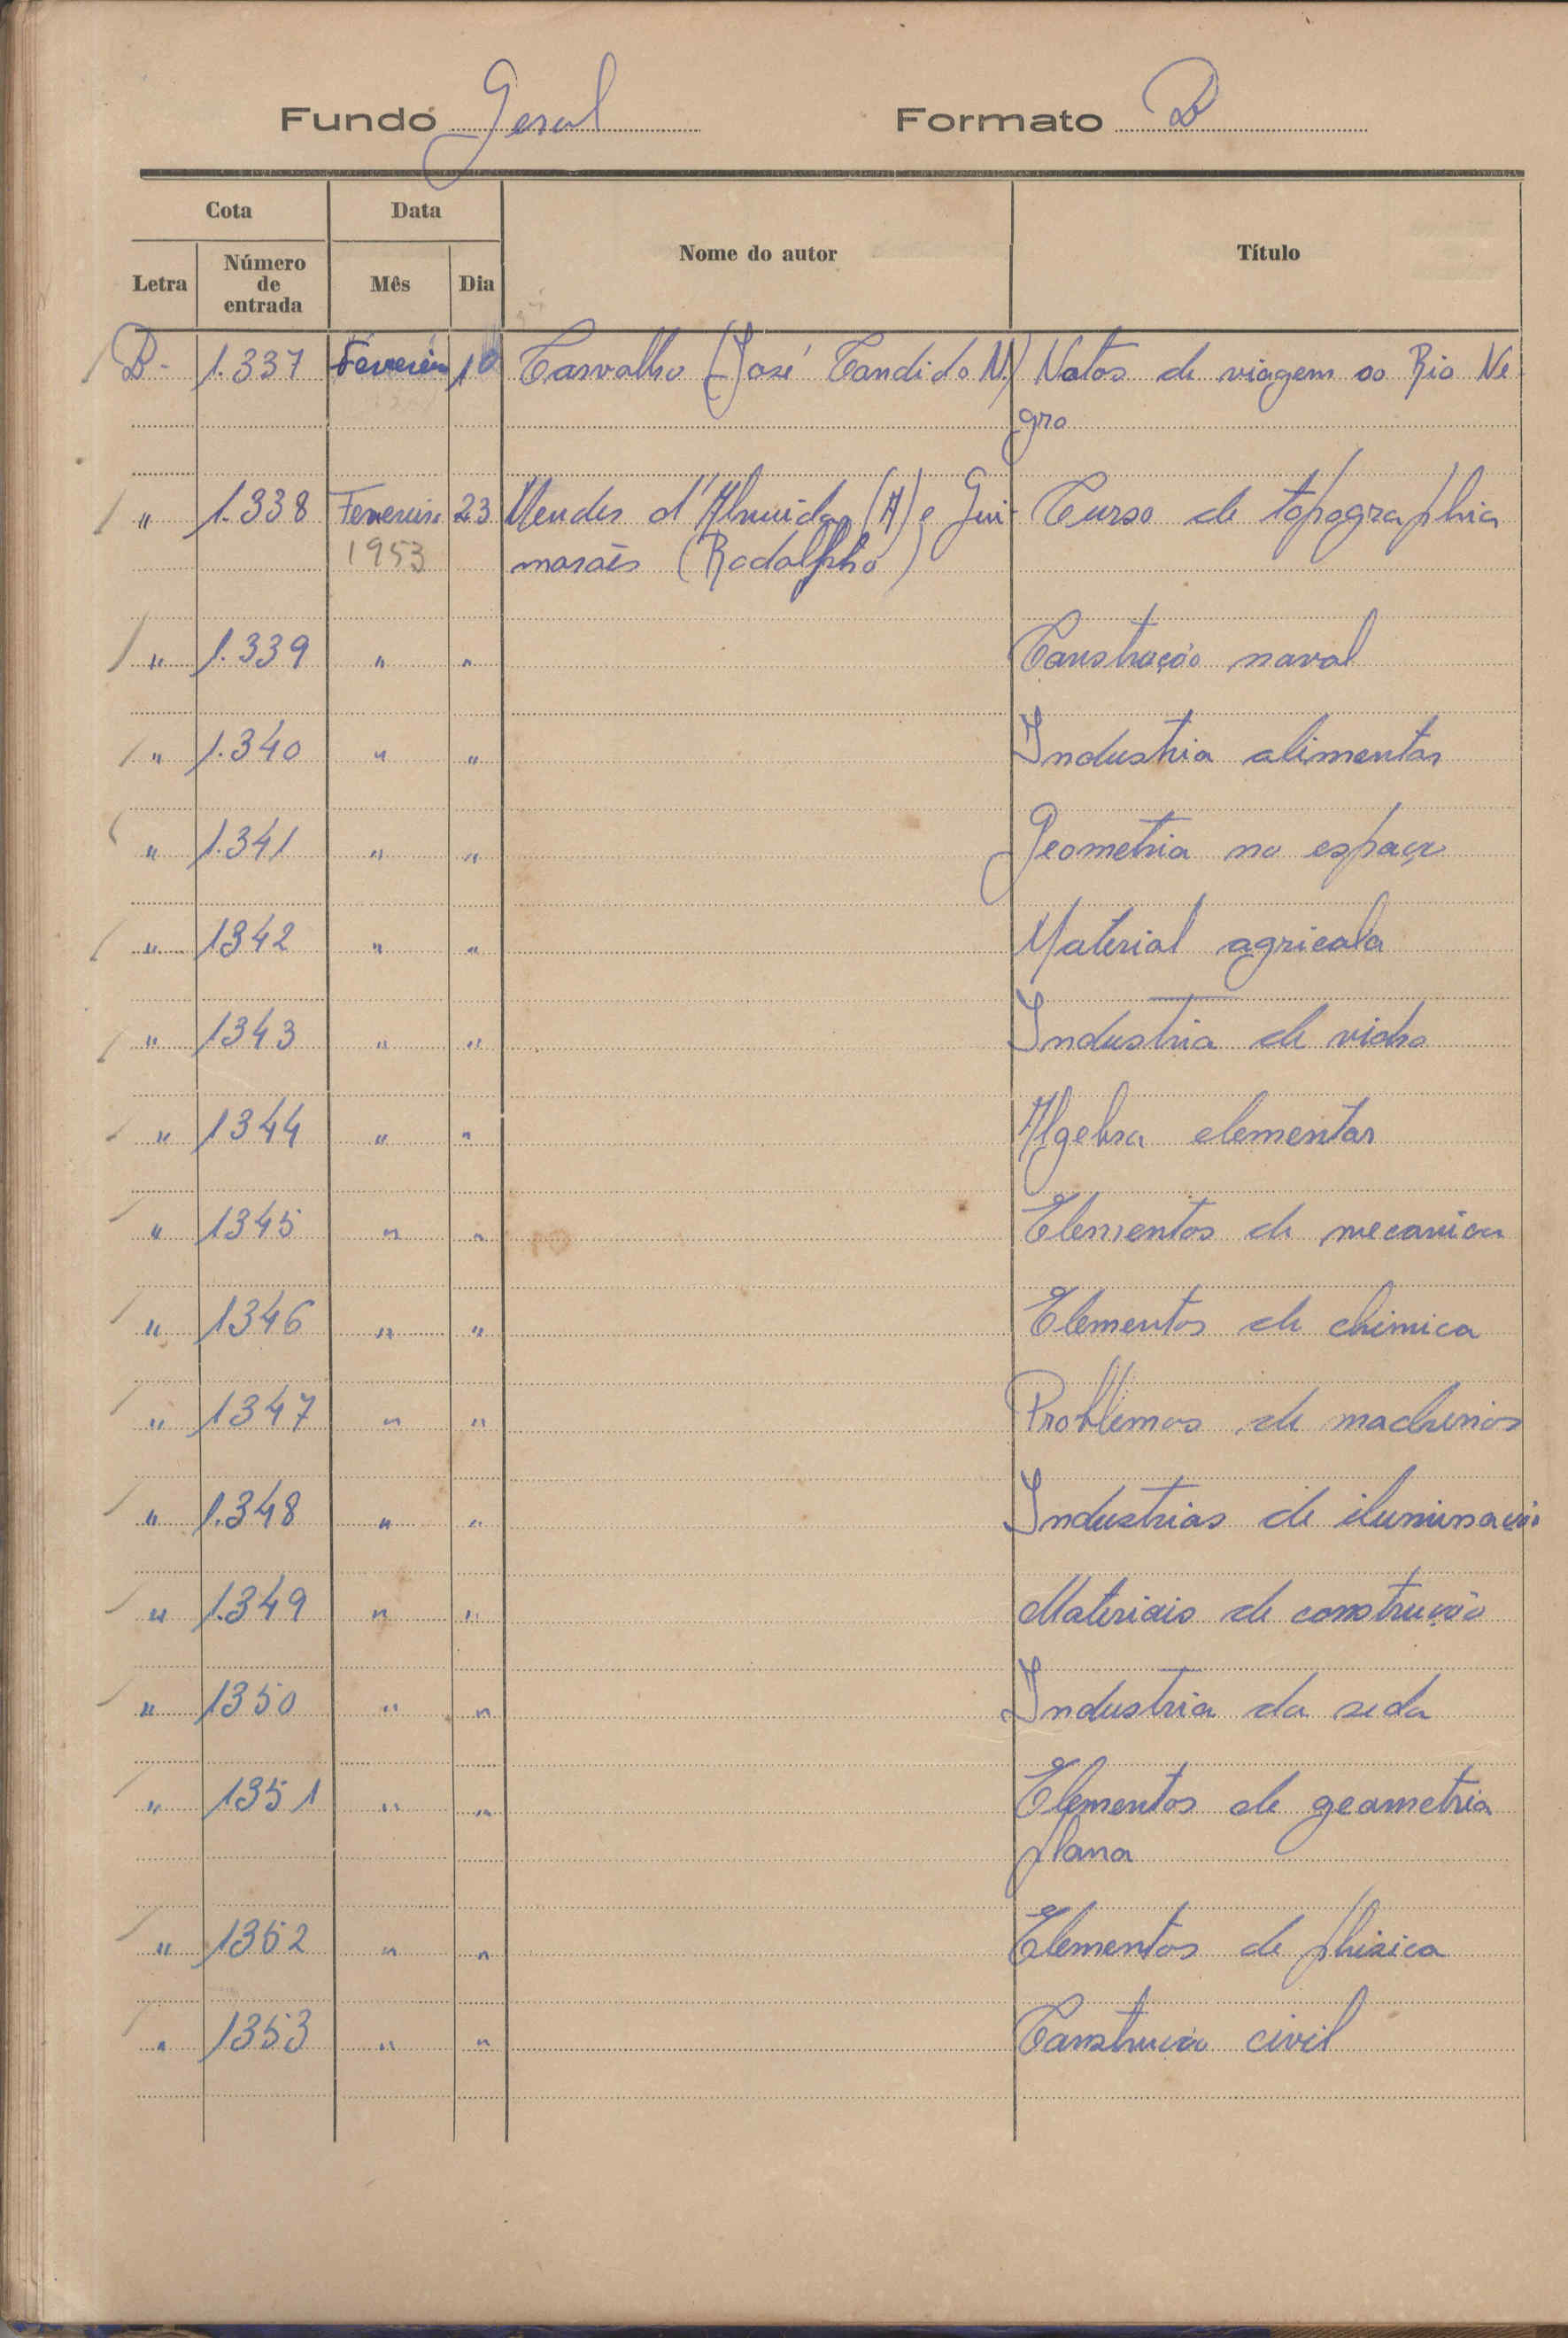 Fundo Geral Formato B
Cota Data Nome do autor Título
Letra Número de entrada Mês Dia
B - 1.337 Fevereiro 10 Carvalho (José Candido M.) Notas de viagem ao Rio Ne
gro
" 1.338 Fevereiro 23 Mendes d'Almeida (A) e Gui- Curso de topographia
1953 marães (Rodolpho)
" 1.339 " " Construção naval
" 1.340 " " Industria alimentar
" 1.341 " " Geometria no espaço
" 1342 " " Material agricola
" 1343 " " Industria de vidro
" 1344 " " Algebra elementar
" 1345 " " Elementos de mecanica
" 1346 " " Elementos de chimica
" 1347 " " Problemas de machinas
" 1.348 " " Industrias de iluminação
" 1.349 " " Materiais de construção
" 1350 " " Industria da seda
" 1351 " " Elementos de geometria
plana
" 1352 " " Elementos de phisica
" 1353 " " Construção civil